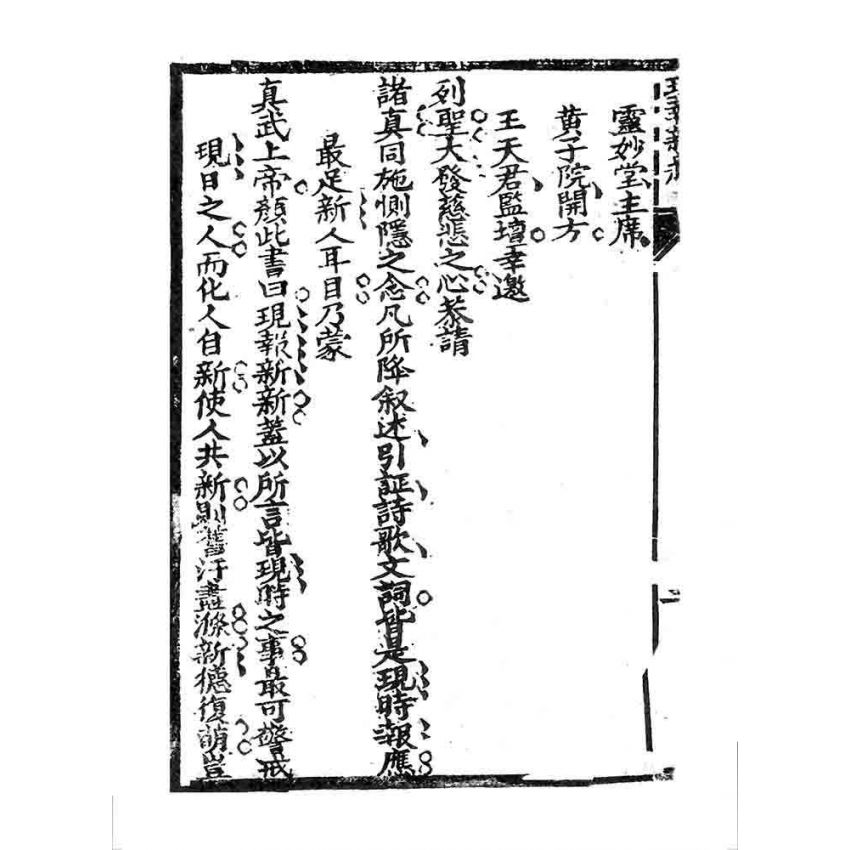 靈妙堂主席
黄子院開方
王天君監壇幸邀
列聖大發慈悲之心恭請
諸真同施惻隱之念凡所降叙述引証詩歌文詞皆是現時報應
最足新人耳目乃蒙
真武上帝顏此書曰現報新新蓋以所言皆現時之事最可警戒
現日之人而化人自新使人共新則舊汙盡滌新德復萌豈